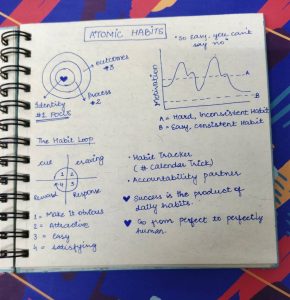 ATOMIC HABITS
Outcomes
#3
Process
#2
Identity
#1 FOCUS
"So Easy, you can't
say no"
Motivation
A
B
A = Hard, Inconsistent Habit
B = Easy, consistent Habit
The Habit Loop
cue
craving
1
2
4
3
Reward
Response
1 = Make it obvious
2 = Attractive
3 = Easy
4 = satisfying
• Habit Tracker
(# Calendar Trick)
• Accountability partner
♥ Success is the product of
daily habits.
♥ Go from perfect to perfectly
human.